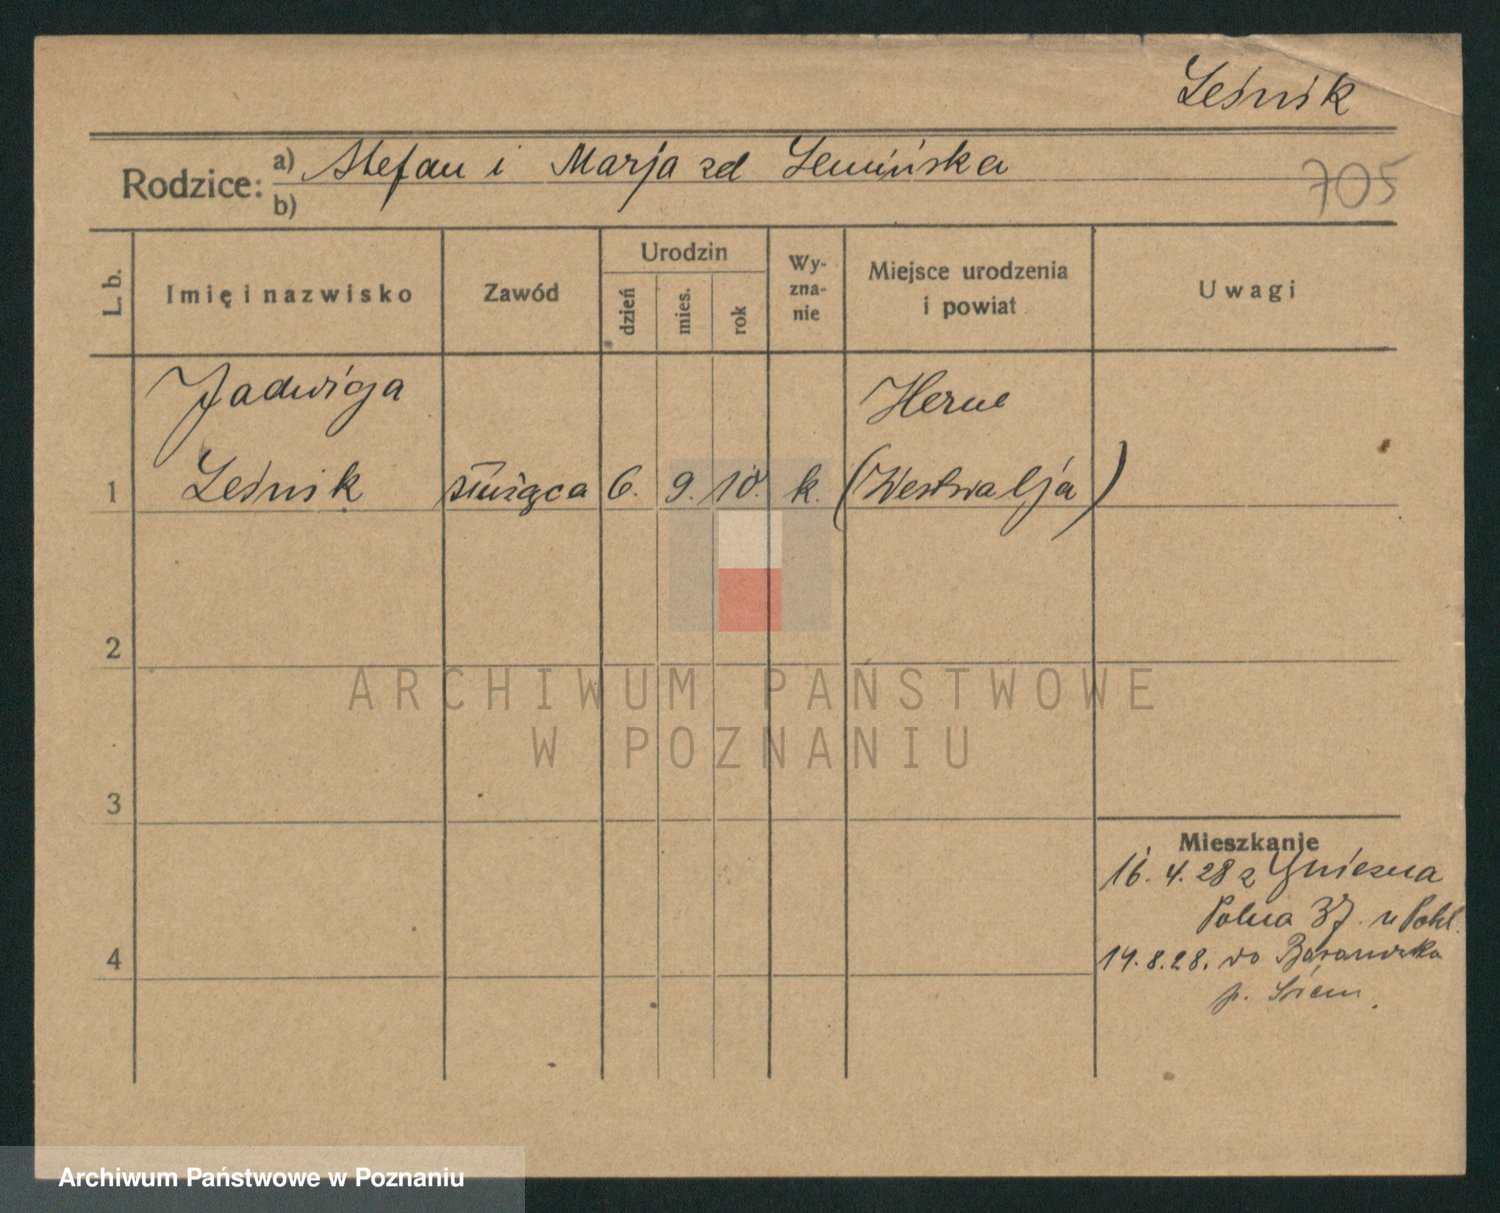 Leśnik
Rodzice: a) Stefan i Marja zd Lemińska
b)
705
L. b.
Imię i nazwisko
Zawód
Urodzin
dzień
mies.
rok
Wy-
zna-
nie
Miejsce urodzenia
i powiat
Uwagi
Jadwiga
Herne
1 Leśnik służąca 6. 9. 10. k. (Westwalja)
2
ARCHIWUM PAŃSTWOWE
W POZNANIU
3
Mieszkanie
16. 4. 28 z Gniezna
Polna 37. u Pohl.
4
14. 8. 28. do
p. Śrem.
Archiwum Państwowe w Poznaniu